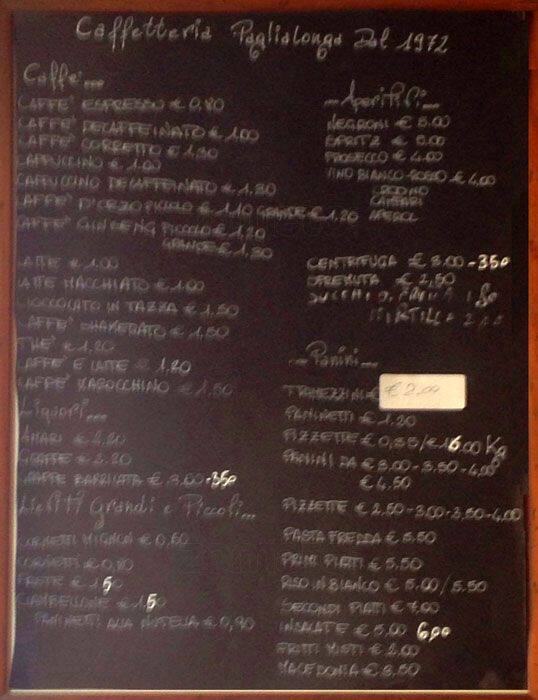 Caffetteria Paglialonga Dal 1972
Caffe'...
CAFFE' ESPRESSO € 0,80
CAFFE' DECAFFEINATO € 1.00
CAFFE' CORRETTO € 1.30
CAPPUCCINO € 1.00
CAPPUCCINO DECAFFEINATO € 1.30
CAFFE' D'ORZO PICCOLO € 1.10 GRANDE € 1.20
CAFFE' GINSENG PICCOLO € 1,20
GRANDE € 1,30
LATTE € 1.00
LATTE MACCHIATO € 1.00
CIOCCOLATO IN TAZZA € 1,50
CAFFE' SHAKERATO € 1,50
THE' € 1,20
CAFFE' E LATTE € 1.20
CAFFE' MAROCCHINO € 1.50
Liquori...
AMARI € 2.20
GRAPPE € 2.20
GRAPPE BARRICATA € 3.00 - 350
Lieviti Grandi e Piccoli...
CORNETTI MIGNON € 0,60
CORNETTI € 0,80
PASTE € 150
CIAMBELLONE € 150
PANINETTI ALLA NUTELLA € 0,90
...Aperitivi...
NEGRONI € 5.00
SPRITZ € 5.00
PROSECCO € 4.00
VINO BIANCO-ROSSO € 4,00
CRODINO
CAMPARI
APEROL
CENTRIFUGA € 3.00 - 350
SPREMUTA € 2,50
SUCCHI DI FRUTTA
MIRTILLO
...Panini...
TRAMEZZINI € € 2,00
PANINETTI € 1.20
PIZZETTE € 0,35/€ 16.00 Kg
PANINI DA € 3.00 - 3.50 - 4,00
€ 4.50
PIZZETTE € 2.50 - 3.00 - 3.50 - 4.00
PASTA FREDDA € 5.50
PRIMI PIATTI € 5.50
RISO IN BIANCO € 5.00/5.50
SECONDI PIATTI € 7.00
INSALATE € 5,00 600
FRITTI MISTI € 2.00
MACEDONIA € 3.50